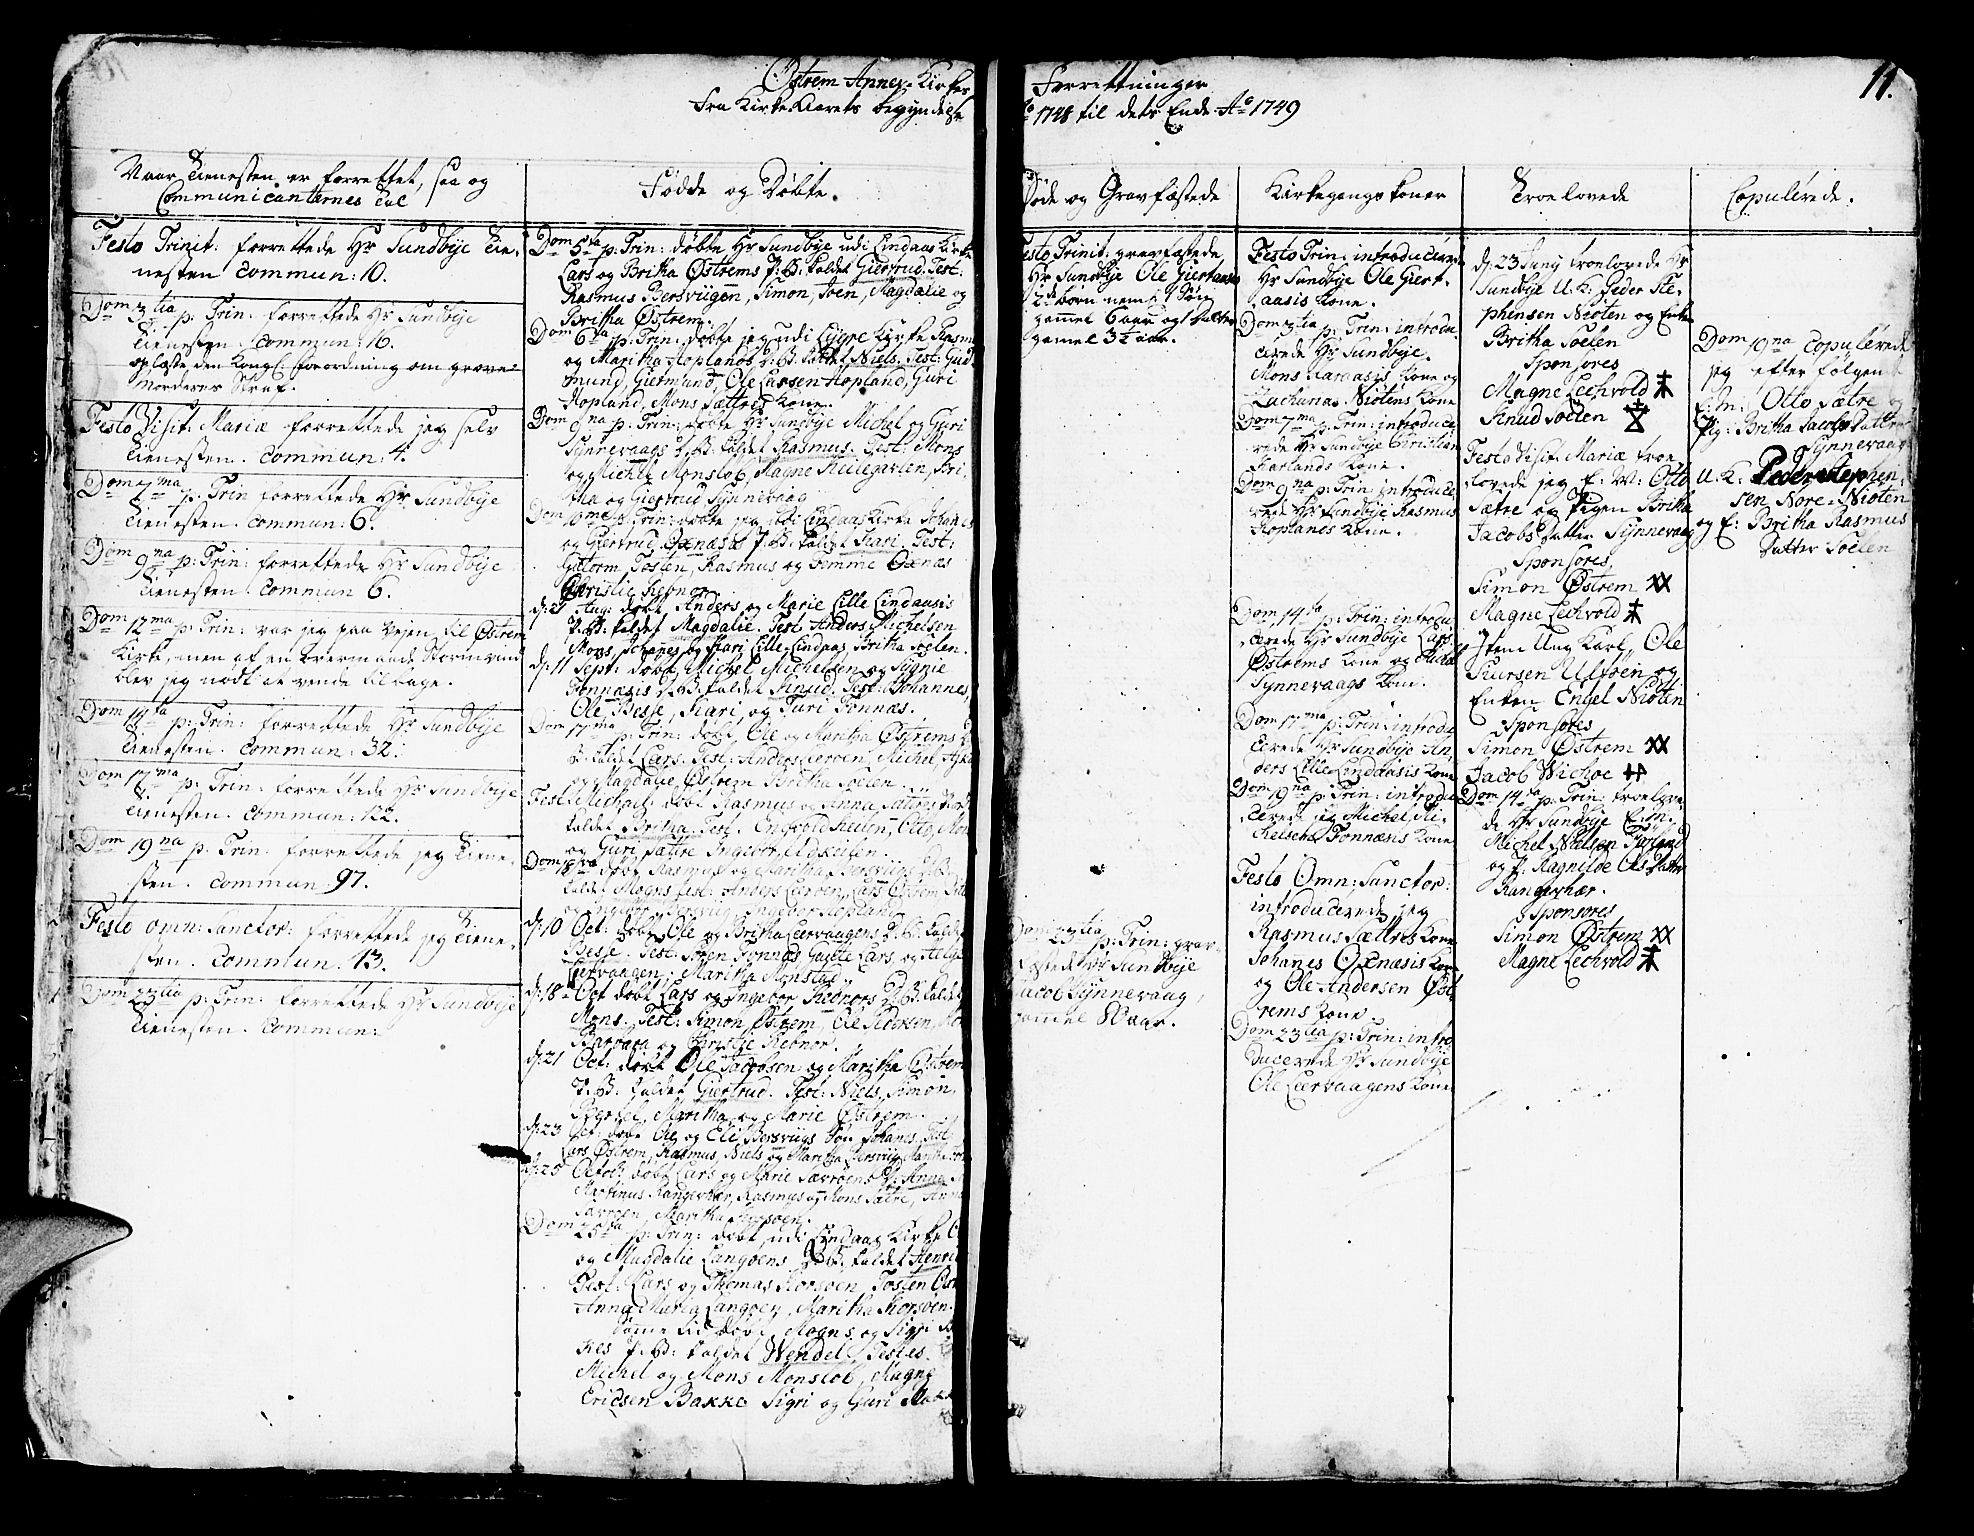 Østrem Annex-Kirkes Forrettninger
Fra Kirke Aarets begyndelse Aº 1748 til dets Ende Aº 1749
11.
Naar Tienesten er forrettet, saa og
Communicanternes Tal
Festo Trinit: forrettede Hr Sundbye Tie-
nesten commun: 10.
Dom 3tia p: Trin: forrettede Hr Sundbye
Tienesten. commun: 16.
oplæste den Kongl: forordning om grove
Morderes Straf.
Festo Visit: Mariæ forrettede jeg selv
Tienesten. commun: 4.
Dom 7ma p: Trin forrettede Hr Sundbye
Tienesten. commun: 6.
Dom 9na p: Trin: forrettede Hr Sundbye
Tienesten. commun 6.
Dom 12ma p: Trin: var jeg paa Vejen til Østrem
Kirke, men af en overmaade Stormvind
blev jeg nødt at vende tilbage.
Dom 14ta p: Trin: forrettede Hr Sundbye
Tienesten. commun: 32.
Dom 17ma p: Trin: forrettede Hr Sundbye
Tienesten. commun: 122.
Dom 19na p: Trin: forrettede jeg Tiene-
sten. commun 97.
Festo omn: Sanctor: forrettede jeg Tiene-
sten. commun: 13.
Dom 23tia p: Trin: forrettede Hr Sundbye
Tienesten. commun:
Fødde og Døbte.
Dom 5ta p: Trin: døbte Hr Sundbye udi Lindaas Kirke
Lars og Britha Østrems P: B: kaldet Giertrud. Test:
Rasmus Bersviigen, Simon, Joen, Magdalie og
Britha Østrem.
Dom 6ta p: Trin: døbte jeg udi Lygre Kirke Rasmus
og Maritha Hoplands D: B: kaldet Niels. Test: Gud
mund, Giermund, Ole Larsen Hopland, Guri
Hopland, Mons Sættres Kone.
Dom 9na p: Trin: døbte Hr Sundbye Michel og Guri
Synnevaags D: B: kaldet Rasmus. Test: Mons
og Michel Monsløb, Magne Kulegarlen, Bri
tha og Giertrud Synnevaag
Dom 10me p: Trin: døbte jeg udi Lindaas Kirke Johanes
og Giertrud Oxnæsæ P: B: kaldet Kari. Test:
Gutorm, Tosten, Rasmus og Oxnæs
Christie Kebnor
d: 27 Aug: døbt Anders og Marie Lille Lindaasis
P: B: kaldet Magdalie. Test Anders Michelsen
Mons, Johanes og Kari Lille Lindaas, Britha Soelen.
d: 11 Sept: døbt Michel Michelsen og Sygnie
Fonnæsis D: B: kaldet Knud. Test: Johannes,
Ole, Besse, Kari og Turi Fonnæs.
Dom 17ma p: Trin: døbt, Ole og Maritha Østrems D:
B: kaldet Lars. Test: Anders Lervøen, Michel,
og Magdalie Østrem Britha Soelen.
Fest. Michael: døbt Rasmus og Anna Sættres P: B:
kaldet Britha. Test.
og Guri Sættre Ingebor
Dom 18va døbt Rasmus og Maritha Bersviigs D: B:
kaldet Mogns Test: Anders Lervøen, Lars Østrem
og Ingebor Bersviig, Ingebor Hopland
d: 10 Oct: døbt Ole og Britha Leervaagens D: B: kaldet
Besse. Test: Søren Fonnæs Lars og Helge
Leervaagen, Maritha Monstad.
d: 18 Oct døbt Lars og Ingebor Kebnors D: B: kaldet
Mons. Test: Simon Østrem, Ole Pedersen,
Barbara og Christie Kebnor.
d: 21 Oct: døbt Ole Jacobsen og Maritha Østrem
P: B: kaldet Giertrud. Test: Niels, Simon,
Maritha og Marie Østrem.
d: 23 Oct: døbt Ole og Eli Bersviigs Søn Johanes Test
Lars Østrem, Rasmus, Niels og Maritha Bersviig
d: 25 Octob: døbt Lars og Marie Særvøens P: Anna
Martinus Rangerhær, Rasmus og Mons Sætre, Anna
Særvøen, Maritha
Dom 25ta p: Trin: døbt udi Lindaas Kirke
og Magdalie Langøens D: B: kaldet Henri
Test: Lars og Thomas Korsøen, Tosten
Anna Maria Langøen, Maritha Korsøen.
Samme tid døbt, Mogns og Sigri
kes P: B: kaldet Wendel, Testes.
Michel og Mons Monsløb, Magne
Ericsen Bakke Sigri og Guri
Døde og Gravfæstede
Festo Trinit: gravfæstede
Hr Sundbye Ole Giertaasis
2de børn neml: 1 Søn
gammel 6 aar og 1 datter
gamel 3½ aar.
Dom 23tia p: Trin: grav-
fæstede Hr Sundbye
Jacob Synnevaag,
gamel 80 aar.
Kirkegangs Koner
Festo Trin: introducerede
Hr Sundbye Ole Giert-
aasis Kone.
Dom 3tia p: Trin: introdu
cerede Hr Sundbye.
Mons Kone og
Zacharias Niøtens Kone
Dom 7ma p: Trin: introduce
rede Hr Sundbye Christian
Farlands Kone.
Dom 9na p: Trin introduce
rede Hr Sundbye Rasmus
Hoplanes Kone.
Dom 14ta p: Trin: introdu
cerede Hr Sundbye Lars
Østrems Kone og Michel
Synnevaags Kone.
Dom 17ma p: Trin: introdu
cerede Hr Sundbye An-
ders Lille Lindaasis Kone
Dom 19na p: Trin: introdu
cerede jeg Michel Mi-
chelsens Fonnæsis Kone
Festo Omn: Sanctor:
introducerede jeg
Rasmus Sættres Kone
Johanes Oxnæsis Kone
og Ole Andersen Øst
rems Kone
Dom 23tia p: Trin: intro
ducerede Hr Sundbye
Ole Leervaagens Kone
Troelovede
d: 23 Juny troelovede Hr
Sundbye U. K: Peder Ste-
phensen Niøten og Enke
Britha Soelen
Sponsores
Magne Lechvold
Knud Soelen
Festo Visit. Mariæ troe
lovede jeg E: M: Otto
Sætre og Pigen Britha
Jacobs datter Synnevaag
Sponsores,
Simon Østrem XX
Magne Lechvold
Item Ung Karl, Ole
Knursen Ulvøen og
Enken Engel Niøten
Sponsores
Simon Østrem XX
Jacob Wichoe
Dom 14ta p: Trin: troelove
de Hr Sundbye E: m:
Michel Nielsen
og P: Ragnilde Ols datter
Rangerhær.
Sponsores
Simon Østrem XX
Magne Lechvold
Copulerede.
Dom 19na copulerede
jeg efter følgende
E: M: Otto Sætre og
Pig: Britha Jacobs datter
Synnevaag
U. K: Peder Stephen-
sen Nore-Niøten
og E: Britha Rasmus
datter Soelen